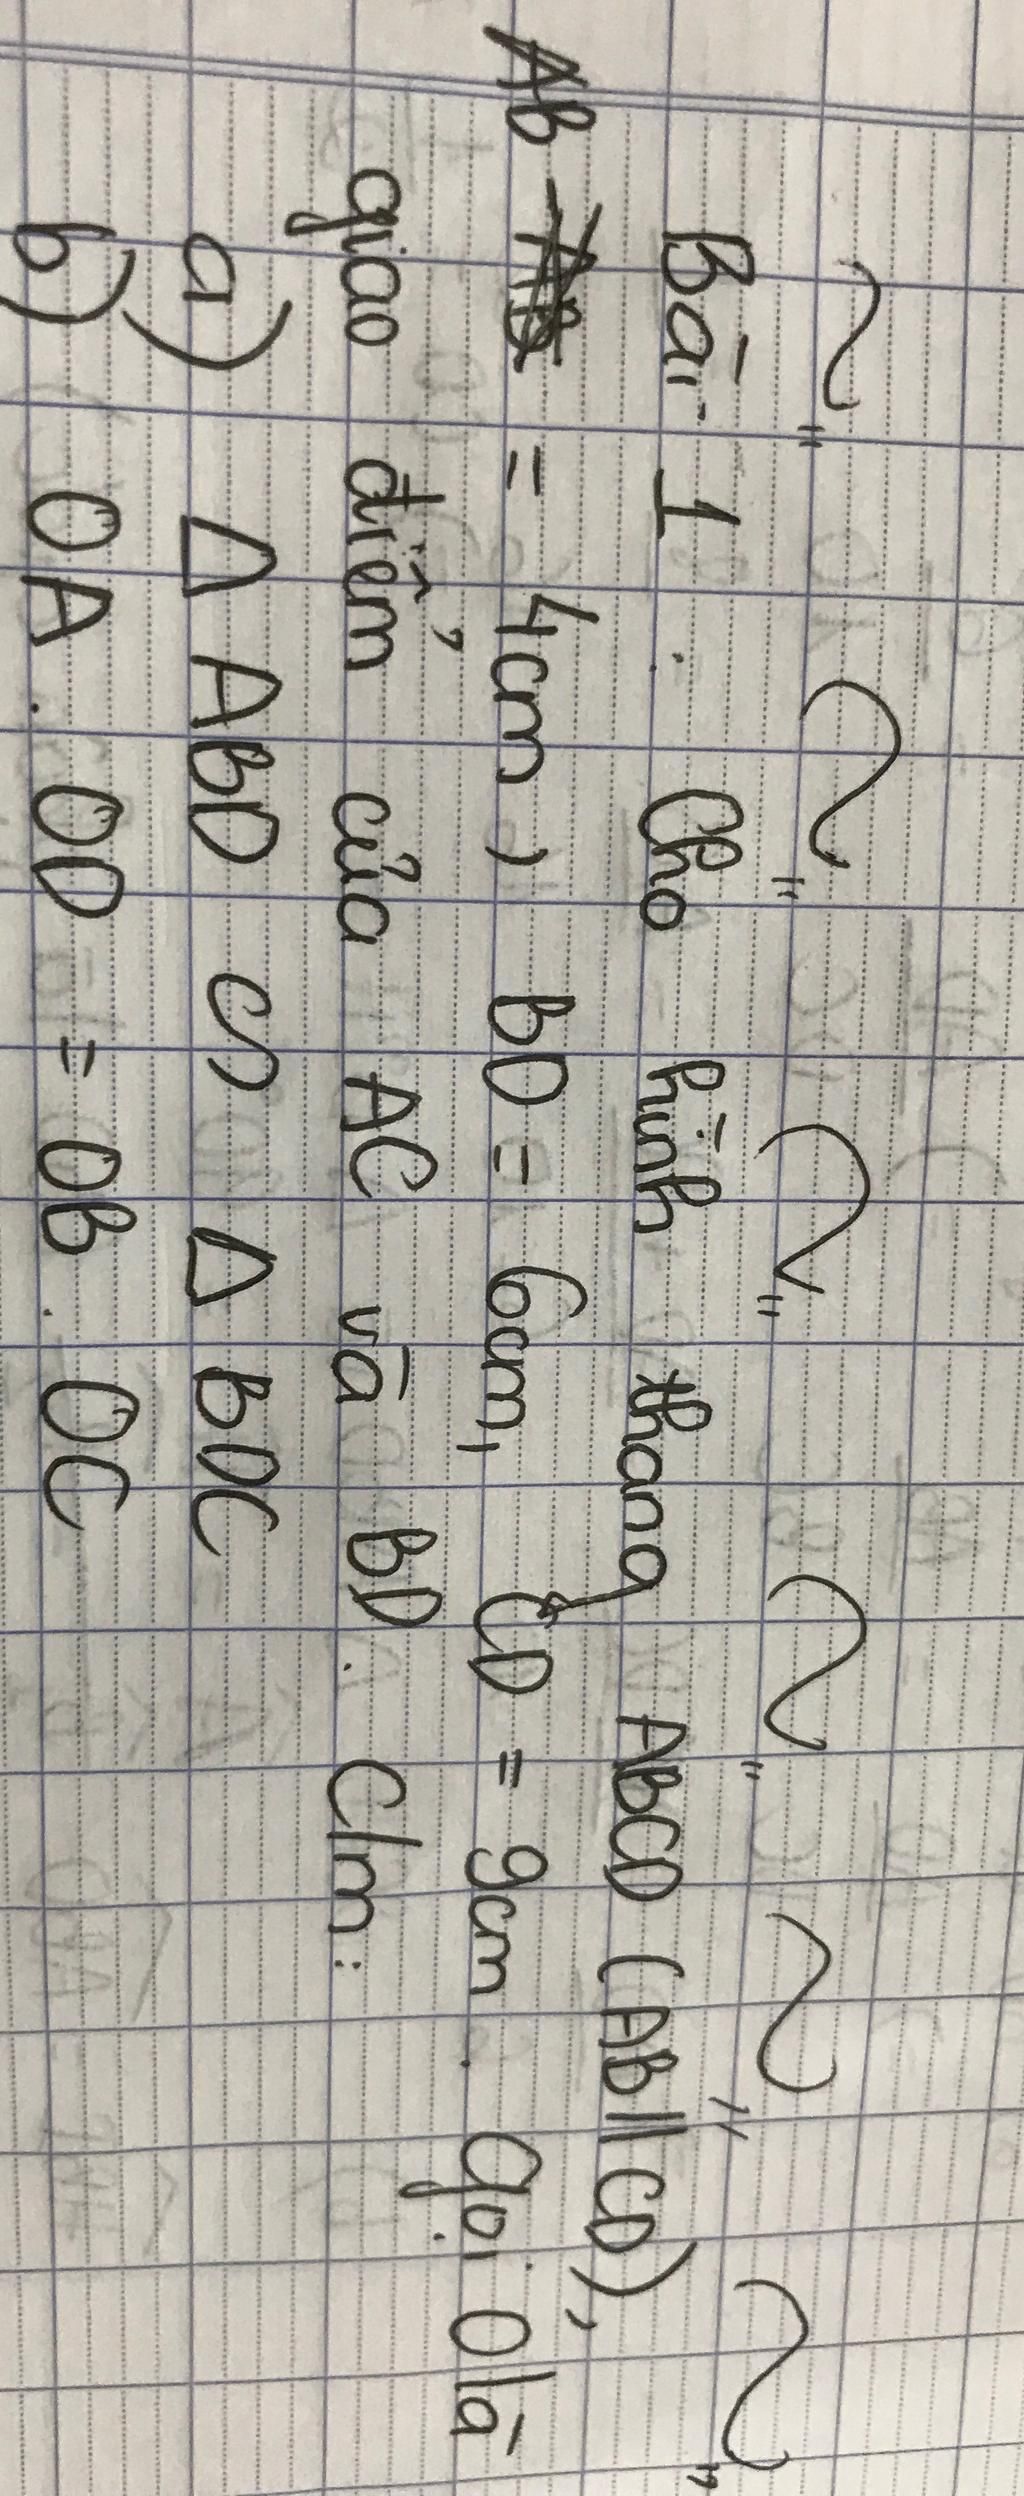 Bài 1 : Cho hình thang ABCD (AB // CD),
AB = 4cm, BD = 6cm, CD = 9cm. Gọi O là
giao điểm của AC và BD. C/m:
a) Δ ABD ∽ Δ BDC
b) OA . OD = OB . OC